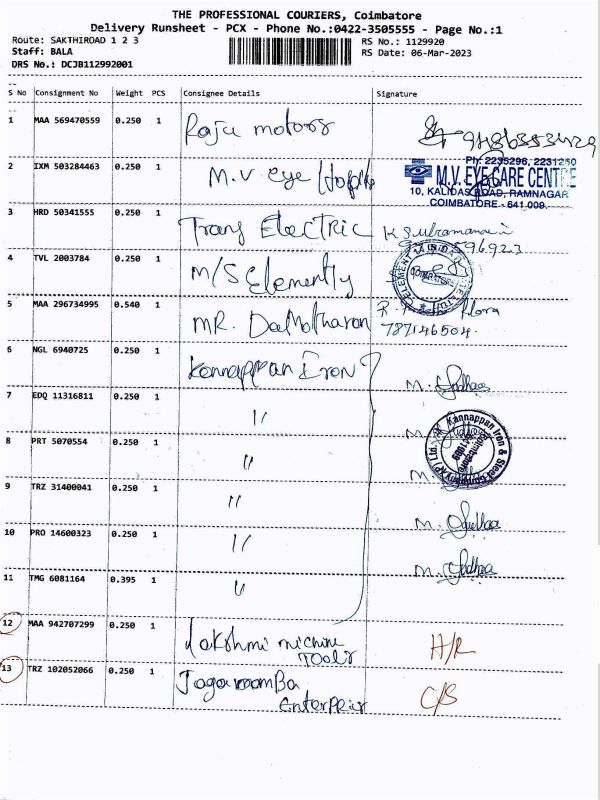 THE PROFESSIONAL COURIERS, Coimbatore
Delivery Runsheet - PCX - Phone No.:0422-3505555 - Page No.:1
Route: SAKTHIROAD 1 2 3 RS No.: 1129920
Staff: BALA RS Date: 06-Mar-2023
DRS No.: DCJB112992001
S No Consignment No Weight PCS Consignee Details Signature
1 MAA 569470559 0.250 1 Raju motors
2 IXM 503284463 0.250 1 M.V eye
Ph: 2235296, 2231260
M.V. EYE CARE CENTRE
10, KALIDAS ROAD, RAMNAGAR
COIMBATORE - 641 009.
3 HRD 50341555 0.250 1 Trans Electric K Subramanani
4 TVL 2003784 0.250 1 M/S Elemently
5 MAA 296734995 0.540 1 MR. Damotharan
787146504
6 NGL 6940725 0.250 1 Kannappan Iron M. Sudhaa
7 EDQ 11316811 0.250 1 " M.
Kannappan Iron & Steel Company (P) Ltd.
8 PRT 5070554 0.250 1 " M.
9 TRZ 31400041 0.250 1 " M. Sudhaa
10 PRO 14600323 0.250 1 " M. Sudhaa
11 TMG 6081164 0.395 1 "
12 MAA 942707299 0.250 1 Lakshmi michine H/R
Tools
13 TRZ 102052066 0.250 1 Jagaroomba C/S
Enterpriur